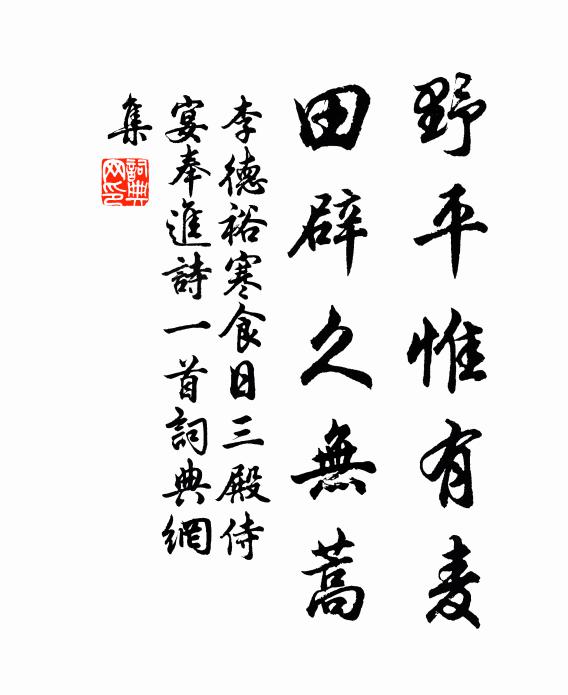 野平惟有麦
田辟久無蒿
李德裕寒食日三殿侍
宴奉進詩一首詞典網
集
詞典
网印